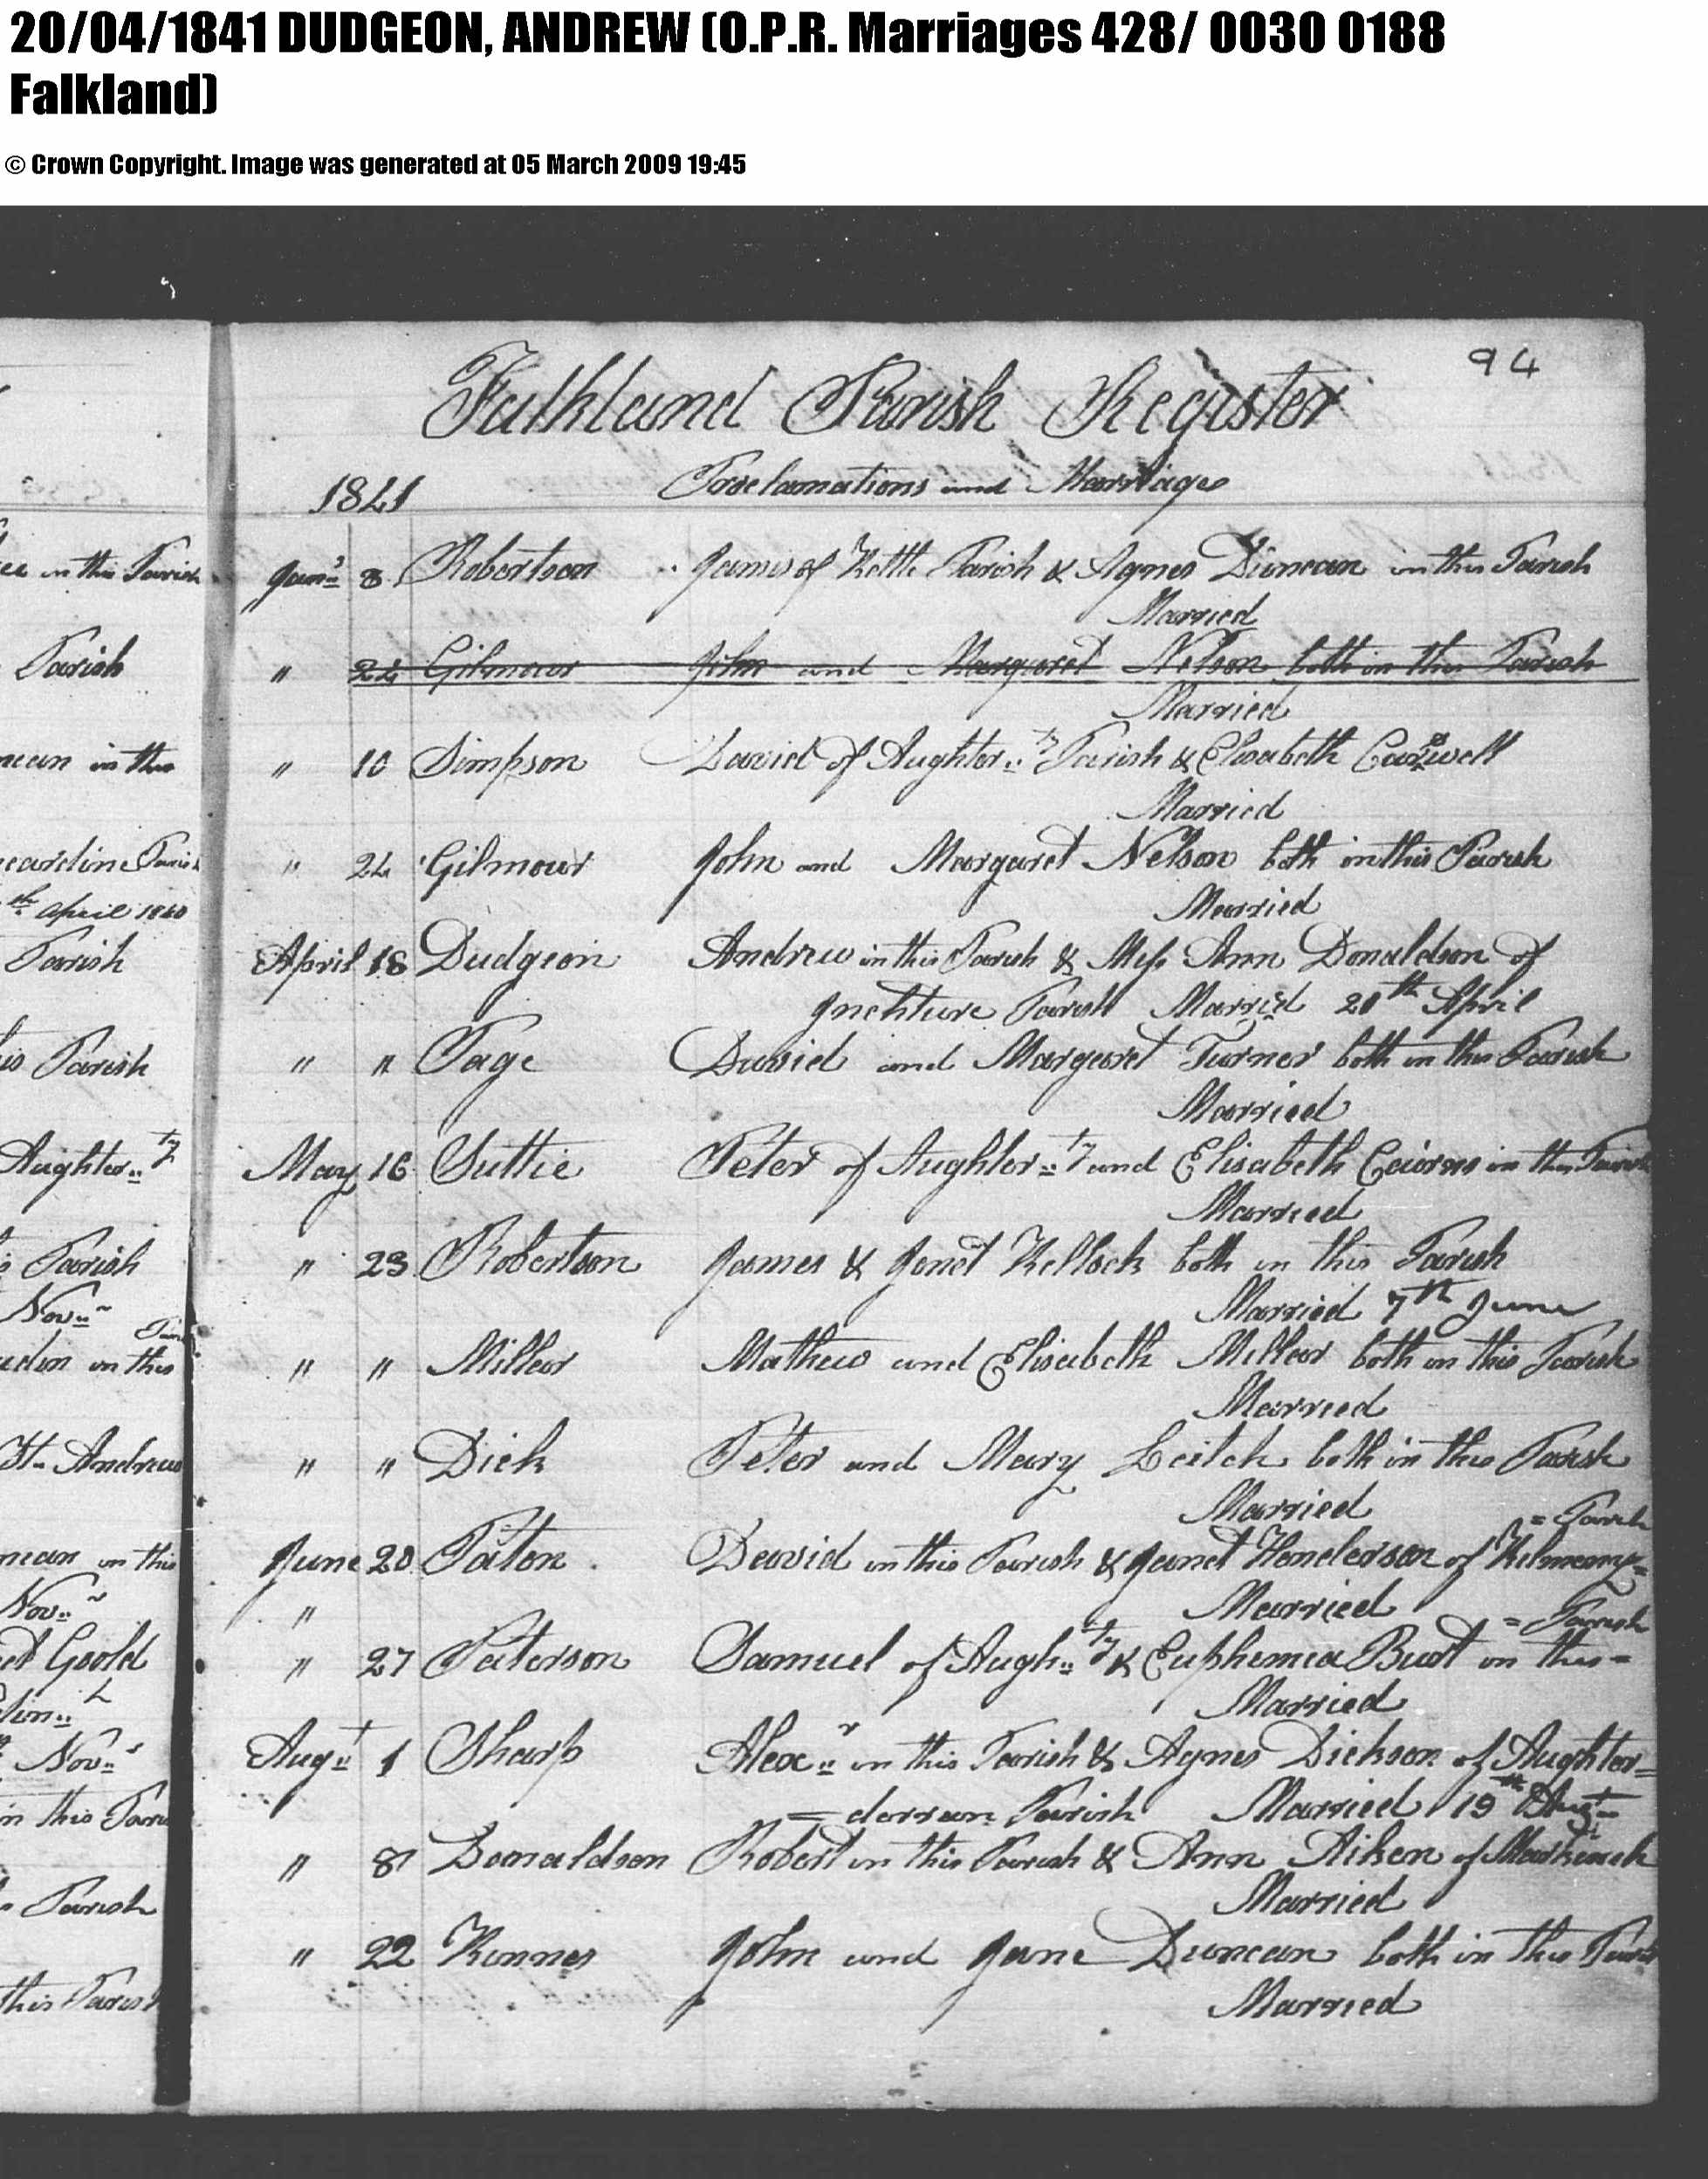 20/04/1841 DUDGEON, ANDREW (O.P.R. Marriages 428/ 0030 0188
Falkland)
© Crown Copyright. Image was generated at 05 March 2009 19:45
94
Falkland Parish Register
1841 Proclamations and Marriages
Janʸ 8 Robertson James of Kettle Parish & Agnes Duncan in this Parish
Married
" 24 Gilmour John and Margaret Nelson both in this Parish
Married
" 10 Simpson David of Aughterᵗʸ Parish & Elisabeth
Married
" 24 Gilmour John and Margaret Nelson both in this Parish
Married
April 18 Dudgeon Andrew in this Parish & Miss Ann Donaldson of
Inchture Parish Married 20th April
" " Page David and Margaret Turner both in this Parish
Married
May 16 Suttie Peter of Aughterᵗʸ and Elisabeth Cairns in this Parish
Married
" 23 Robertson James & Jenet Kellock both in this Parish
Married 7th June
" " Millar Mathew and Elisabeth Millar both in this Parish
Married
" " Dick Peter and Mary Leitch both in this Parish
Married = Parish
June 20 Paton David in this Parish & Janet Henderson of Kilmany=
" Married = Parish
" 27 Paterson Samuel of Aughᵗʸ & Euphemia Burt in this=
Married
Augᵗ 1 Sharp Alexʳ in this Parish & Agnes Dickson of Aughter=
=derran Parish Married 19th Augᵗ
" 8 Donaldson Robert in this Parish & Ann Aiken of Markinch
Married
" 22 Kinnes John and Jane Duncan both in this Parish
Married
in this Parish
Parish
in this
Parish
April 1840
Parish
Parish
Aughterᵗʸ
Parish
Nov
in this
Sᵗ Andrews
in this
Nov
Goold
Nov
in this Paris
Parish
this Parish